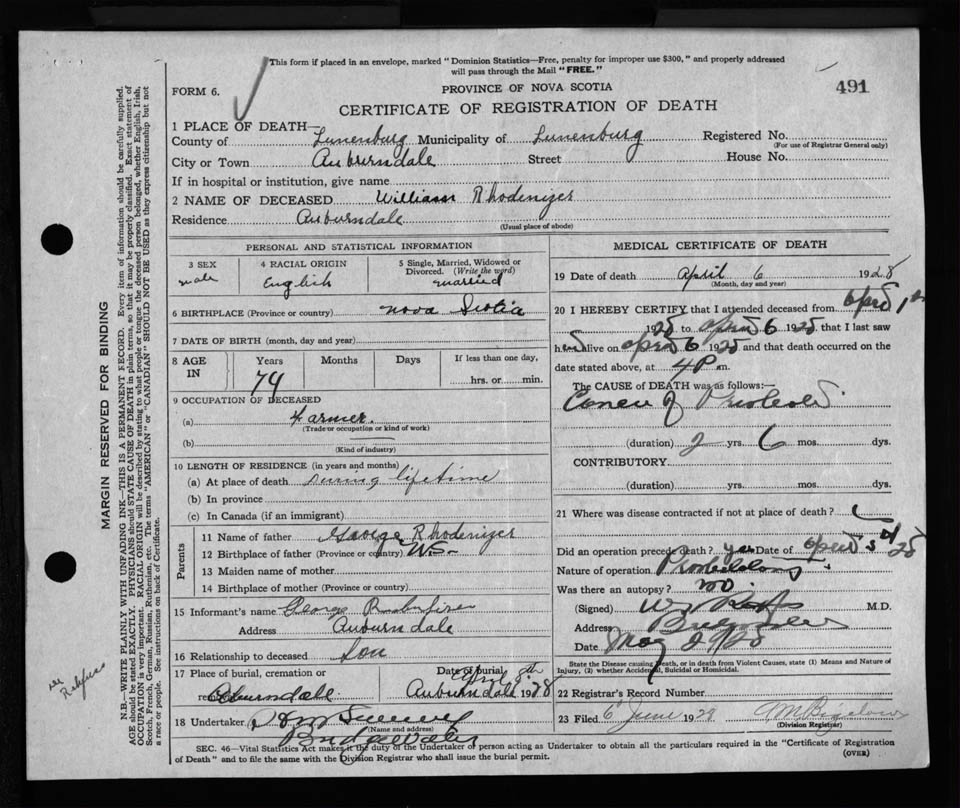 This form if placed in an envelope, marked "Dominion Statistics—Free, penalty for improper use $300," and properly addressed
will pass through the Mail "FREE."
FORM 6.
PROVINCE OF NOVA SCOTIA
491
CERTIFICATE OF REGISTRATION OF DEATH
1 PLACE OF DEATH—
County of Lunenburg Municipality of Lunenburg Registered No.
(For use of Registrar General only)
City or Town Auburndale Street House No.
If in hospital or institution, give name
2 NAME OF DECEASED William Rhodenizer
Residence Auburndale
(Usual place of abode)
PERSONAL AND STATISTICAL INFORMATION
3 SEX
male
4 RACIAL ORIGIN
English
5 Single, Married, Widowed or
Divorced. (Write the word)
married
6 BIRTHPLACE (Province or country) Nova Scotia
7 DATE OF BIRTH (month, day and year)
8 AGE
IN
Years
Months
Days
If less than one day,
hrs. or min.
74
9 OCCUPATION OF DECEASED
(a) Farmer
(Trade or occupation or kind of work)
(b)
(Kind of industry)
10 LENGTH OF RESIDENCE (in years and months)
(a) At place of death during lifetime
(b) In province
(c) In Canada (if an immigrant)
Parents
11 Name of father George Rhodenizer
12 Birthplace of father (Province or country) N.S.
13 Maiden name of mother
14 Birthplace of mother (Province or country)
15 Informant's name George
Address Auburndale
16 Relationship to deceased Son
17 Place of burial, cremation or
Date of burial
Auburndale 1928
18 Undertaker
(Name and address)
Bridgewater
MEDICAL CERTIFICATE OF DEATH
19 Date of death April 6 1928
(Month, day and year)
20 I HEREBY CERTIFY that I attended deceased from April 1st
1928 to April 6 1928 that I last saw
h alive on April 6 1928 and that death occurred on the
date stated above, at 4 P m.
The CAUSE of DEATH was as follows:—
Cancer of
(duration) 2 yrs. 6 mos. dys.
CONTRIBUTORY
(duration) yrs. mos. dys.
21 Where was disease contracted if not at place of death?
Did an operation precede death? yes Date of April 5 28
Nature of operation
Was there an autopsy? no.
(Signed) M.D.
Address Bridgewater
Date May
State the Disease causing Death, or in death from Violent Causes, state (1) Means and Nature of
Injury, (2) whether Accidental, Suicidal or Homicidal.
22 Registrar's Record Number
23 Filed 6 June 1929
(Division Registrar)
SEC. 46—Vital Statistics Act makes it the duty of the Undertaker or person acting as Undertaker to obtain all the particulars required in the "Certificate of Registration
of Death" and to file the same with the Division Registrar who shall issue the burial permit.
MARGIN RESERVED FOR BINDING
N.B.—WRITE PLAINLY WITH UNFADING INK—THIS IS A PERMANENT RECORD. Every item of information should be carefully supplied.
AGE should be stated EXACTLY. PHYSICIANS should STATE CAUSE OF DEATH in plain terms, so that it may be properly classified. Exact statement of
OCCUPATION is very important. RACIAL ORIGIN will be described by stating to what people or tongue the deceased person belonged, whether English, Irish,
Scotch, French, German, Russian, Ruthenian, etc. The terms "AMERICAN" or "CANADIAN" SHOULD NOT BE USED as they express citizenship but not
a race or people. See instructions on back of Certificate.